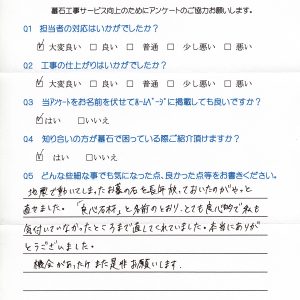 墓石工事サービス向上のためにアンケートのご協力お願いします。
01 担当者の対応はいかがでしたか?
☑大変良い □良い □普通 □少し悪い □悪い
02 工事の仕上がりはいかがでしたか?
☑大変良い □良い □普通 □少し悪い □悪い
03 当アンケートをお名前を伏せてホームページに掲載しても良いですか?
☑はい □いいえ
04 知り合いの方が墓石で困っている際ご紹介頂けますか?
☑はい □いいえ
05 どんな些細な事でも気になった点、良かった点等をお書きください。
地震で動いてしまったお墓の石を長年放っておいたのがやっと
直せました。「良心石材」と名前のとおり、とても良心的で私も
気付いていなかったところまで直してくれていました。本当にありが
とうございました。
機会があったらまた是非お願いします。